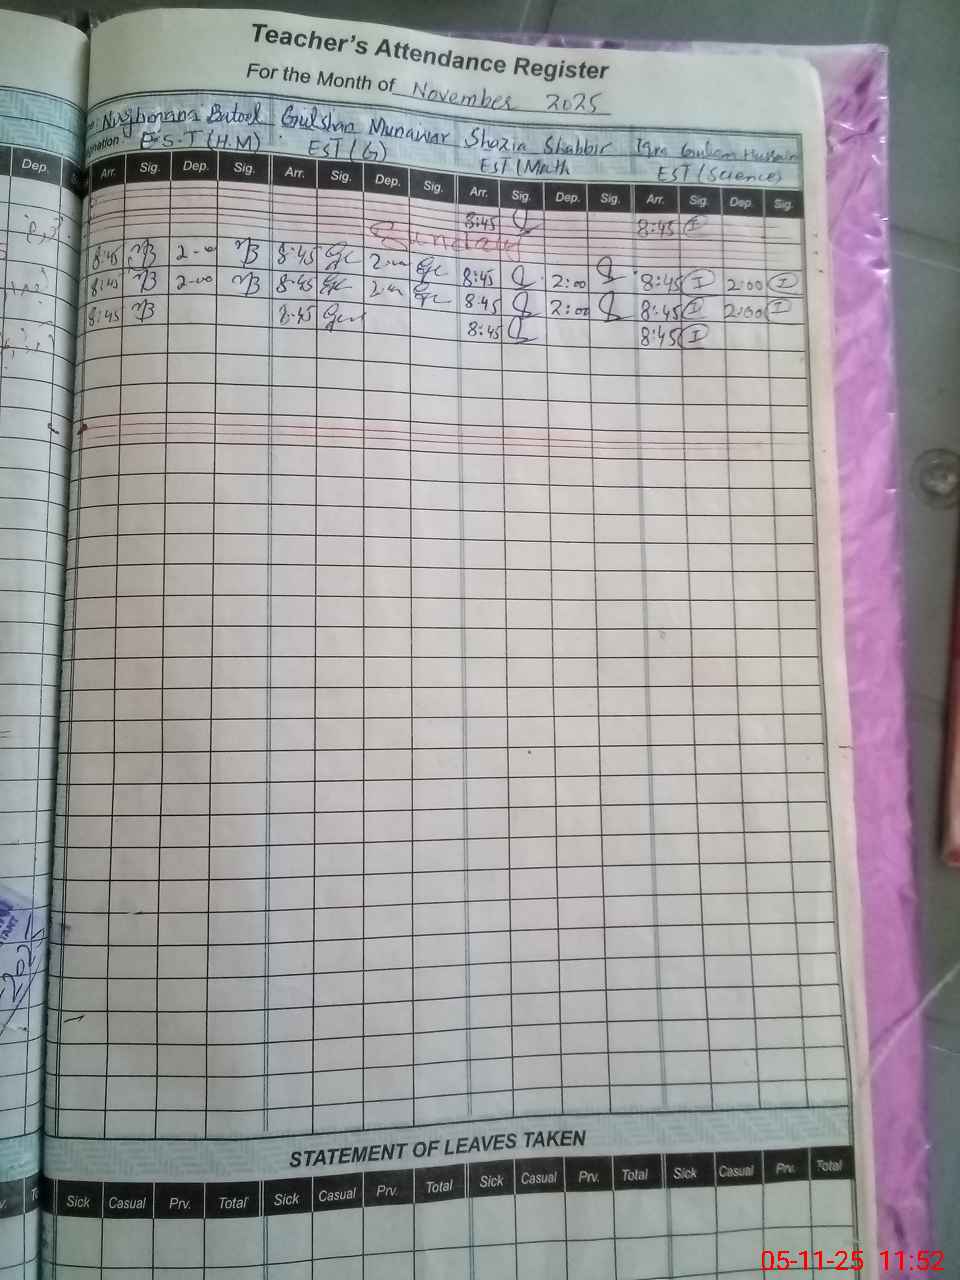 Teacher's Attendance Register
For the Month of November 2025
Batool Gulshan Munawar Shazia Shabbir Iqra Hussain
E.S.T (H.M) EST (G) EST (Math EST (Science)
Dep. Arr. Sig. Dep. Sig. Arr. Sig. Dep. Sig. Arr. Sig. Dep. Sig. Arr. Sig. Dep. Sig.
8:45 8:45 I
Sunday
8:45 2-00 8:45 8:45 2:00 8:45 I 2:00 I
8:45 2-00 8:45 8:45 2:00 8:45 I 2:00 I
8:45 8:45 8:45 8:45 I
STATEMENT OF LEAVES TAKEN
Sick Casual Prv. Total Sick Casual Prv. Total Sick Casual Prv. Total Sick Casual Prv. Total
2025
05-11-25 11:52